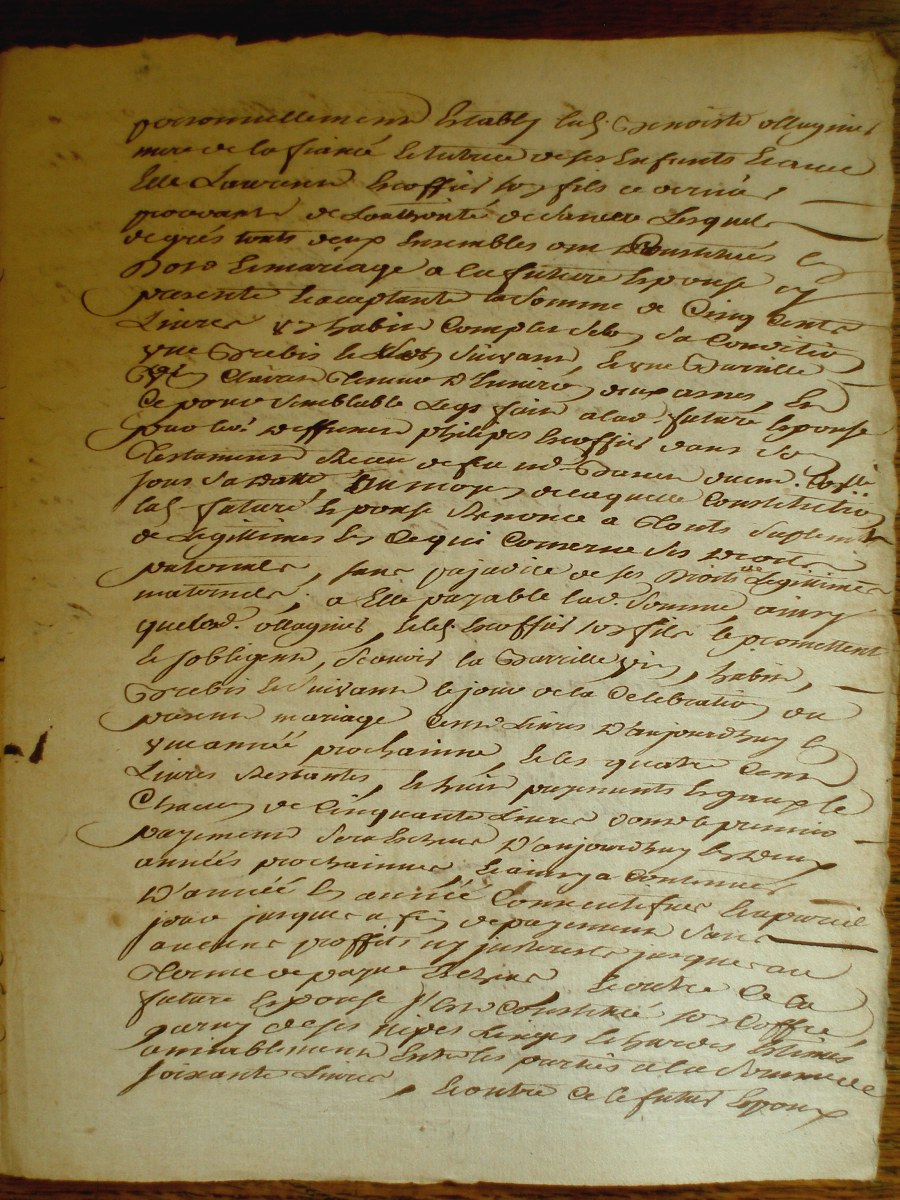 personnellement Estably lad. Benoiste ollagnier
mere de la fiancé et tutrice de ses Enfants Et avec
Elle Laurent Escoffier son fils ce dernier
procedant de L'authorité de sa mere Lesquels
de grés touts deux Ensembles ont Constitués En
Dot Et mariage a la future Espouse cy
presente Et acceptante la somme de Cinq Cents
Livres un habit Complet selon sa Condition
une Brebis et Suivant, Et une Barrille
Vin Clairet Tenue D'Environ deux asnes, En
Ce pour semblable Legs fait a lad. future Espouse
par led. Deffunt philipes Escoffier dans son
Testament Receu de feu md.
sous sa datte, Au moyen de laquelle Constitution
lad. future Espouse Renonce a Touts suplement
de Legittimes En Ce qui Concerne ses Droits
paternels, sans prejudice de ses Droits de Legittimes
maternels, a Elle payable lad. Somme, ainsy
que lad. Ollagnier, et led. Escoffier son fils le promettent
Et sobligent, Scavoir la Barrille vin, habit,
Brebis Et Suivant le jour de la Celebration du
present mariage Cent Livres D'aujourdhuy En
une année prochainne, Et les quatre Cent
Livres Restantes, En huit payements Esgaux de
Chacun de Cinquante Livres dont le premier
payement sera Escheu D'aujourdhuy En Deux
années prochainnes Et ainsy a Continuer
D'année En année Consecutifves Et a pareil
jour jusques a fin de payement sans
aucuns proffits ny jnterets jusques au
Terme de paye Escheus, Et outre Ce la
future Espouse s'est Constitué son Coffre
garny de ses nipes Linges et hardes Estimés
amiablement Entre les parties a la Somme de
soixante Livres, Et outre Ce le futur Espoux